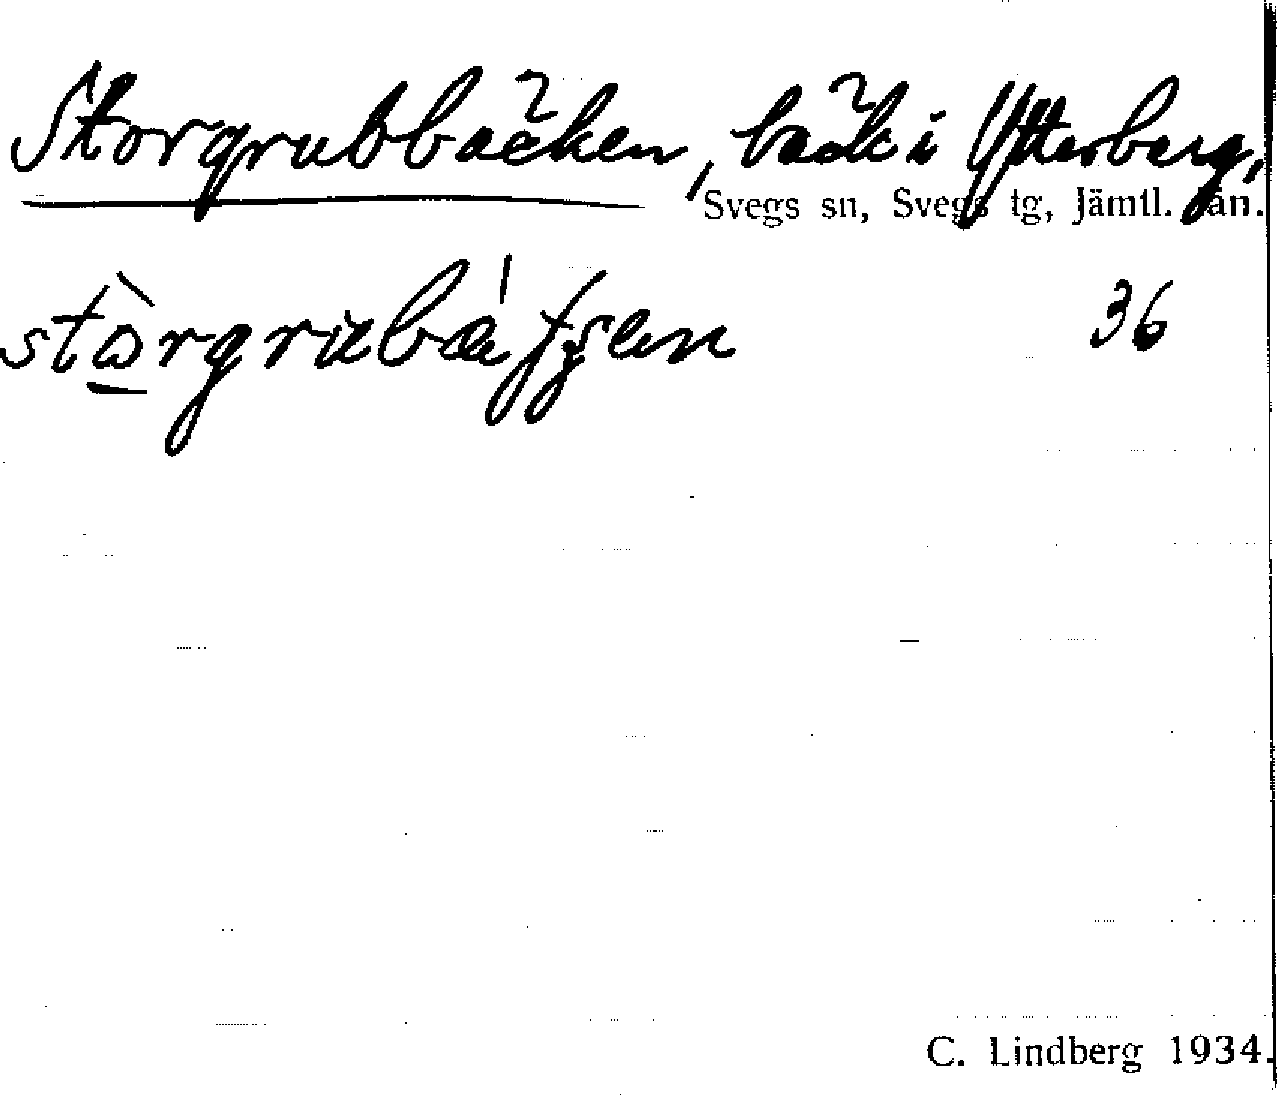 Storgrubbäcken, bäck i Ytterberg,
Svegs sn, Svegs tg, Jämtl. län.
36
C. Lindberg 1934.